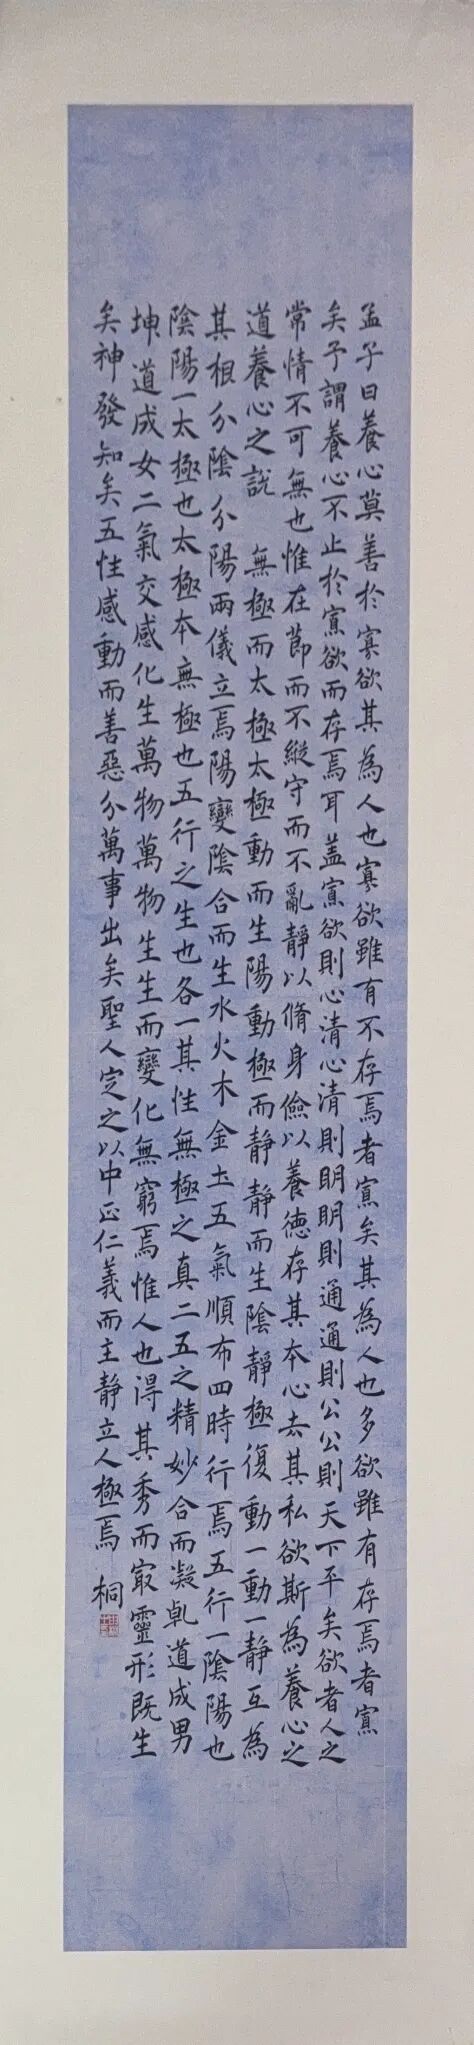 孟子曰養心莫善於寡欲其為人也寡欲雖有不存焉者寡矣其為人也多欲雖有存焉者寡
矣予謂養心不止於寡欲而存焉耳盖寡欲則心清心清則明明則通通則公公則天下平矣欲者人之
常情不可無也惟在節而不縱守而不亂靜以脩身儉以養德存其本心去其私欲斯為養心之
道養心之說 無極而太極太極動而生陽動極而靜靜而生陰靜極復動一動一靜互為
其根分陰分陽兩儀立焉陽變陰合而生水火木金土五氣順布四時行焉五行一陰陽也
陰陽一太極也太極本無極也五行之生也各一其性無極之真二五之精妙合而凝乹道成男
坤道成女二氣交感化生萬物萬物生生而變化無窮焉惟人也得其秀而冣靈形既生
矣神發知矣五性感動而善惡分萬事出矣聖人定之以中正仁義而主靜立人極焉 桐